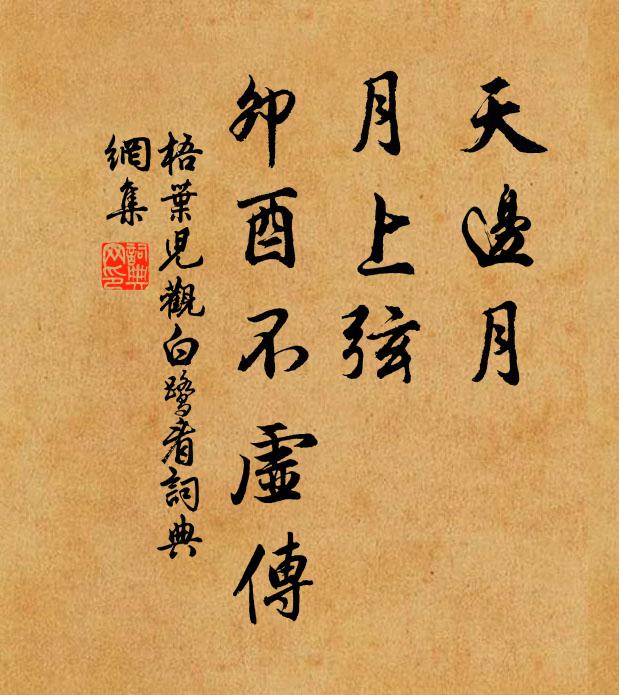 天邊月
月上弦
卯酉不虛傳
梧葉兒觀白鷺看詞典
網集
詞典
网印